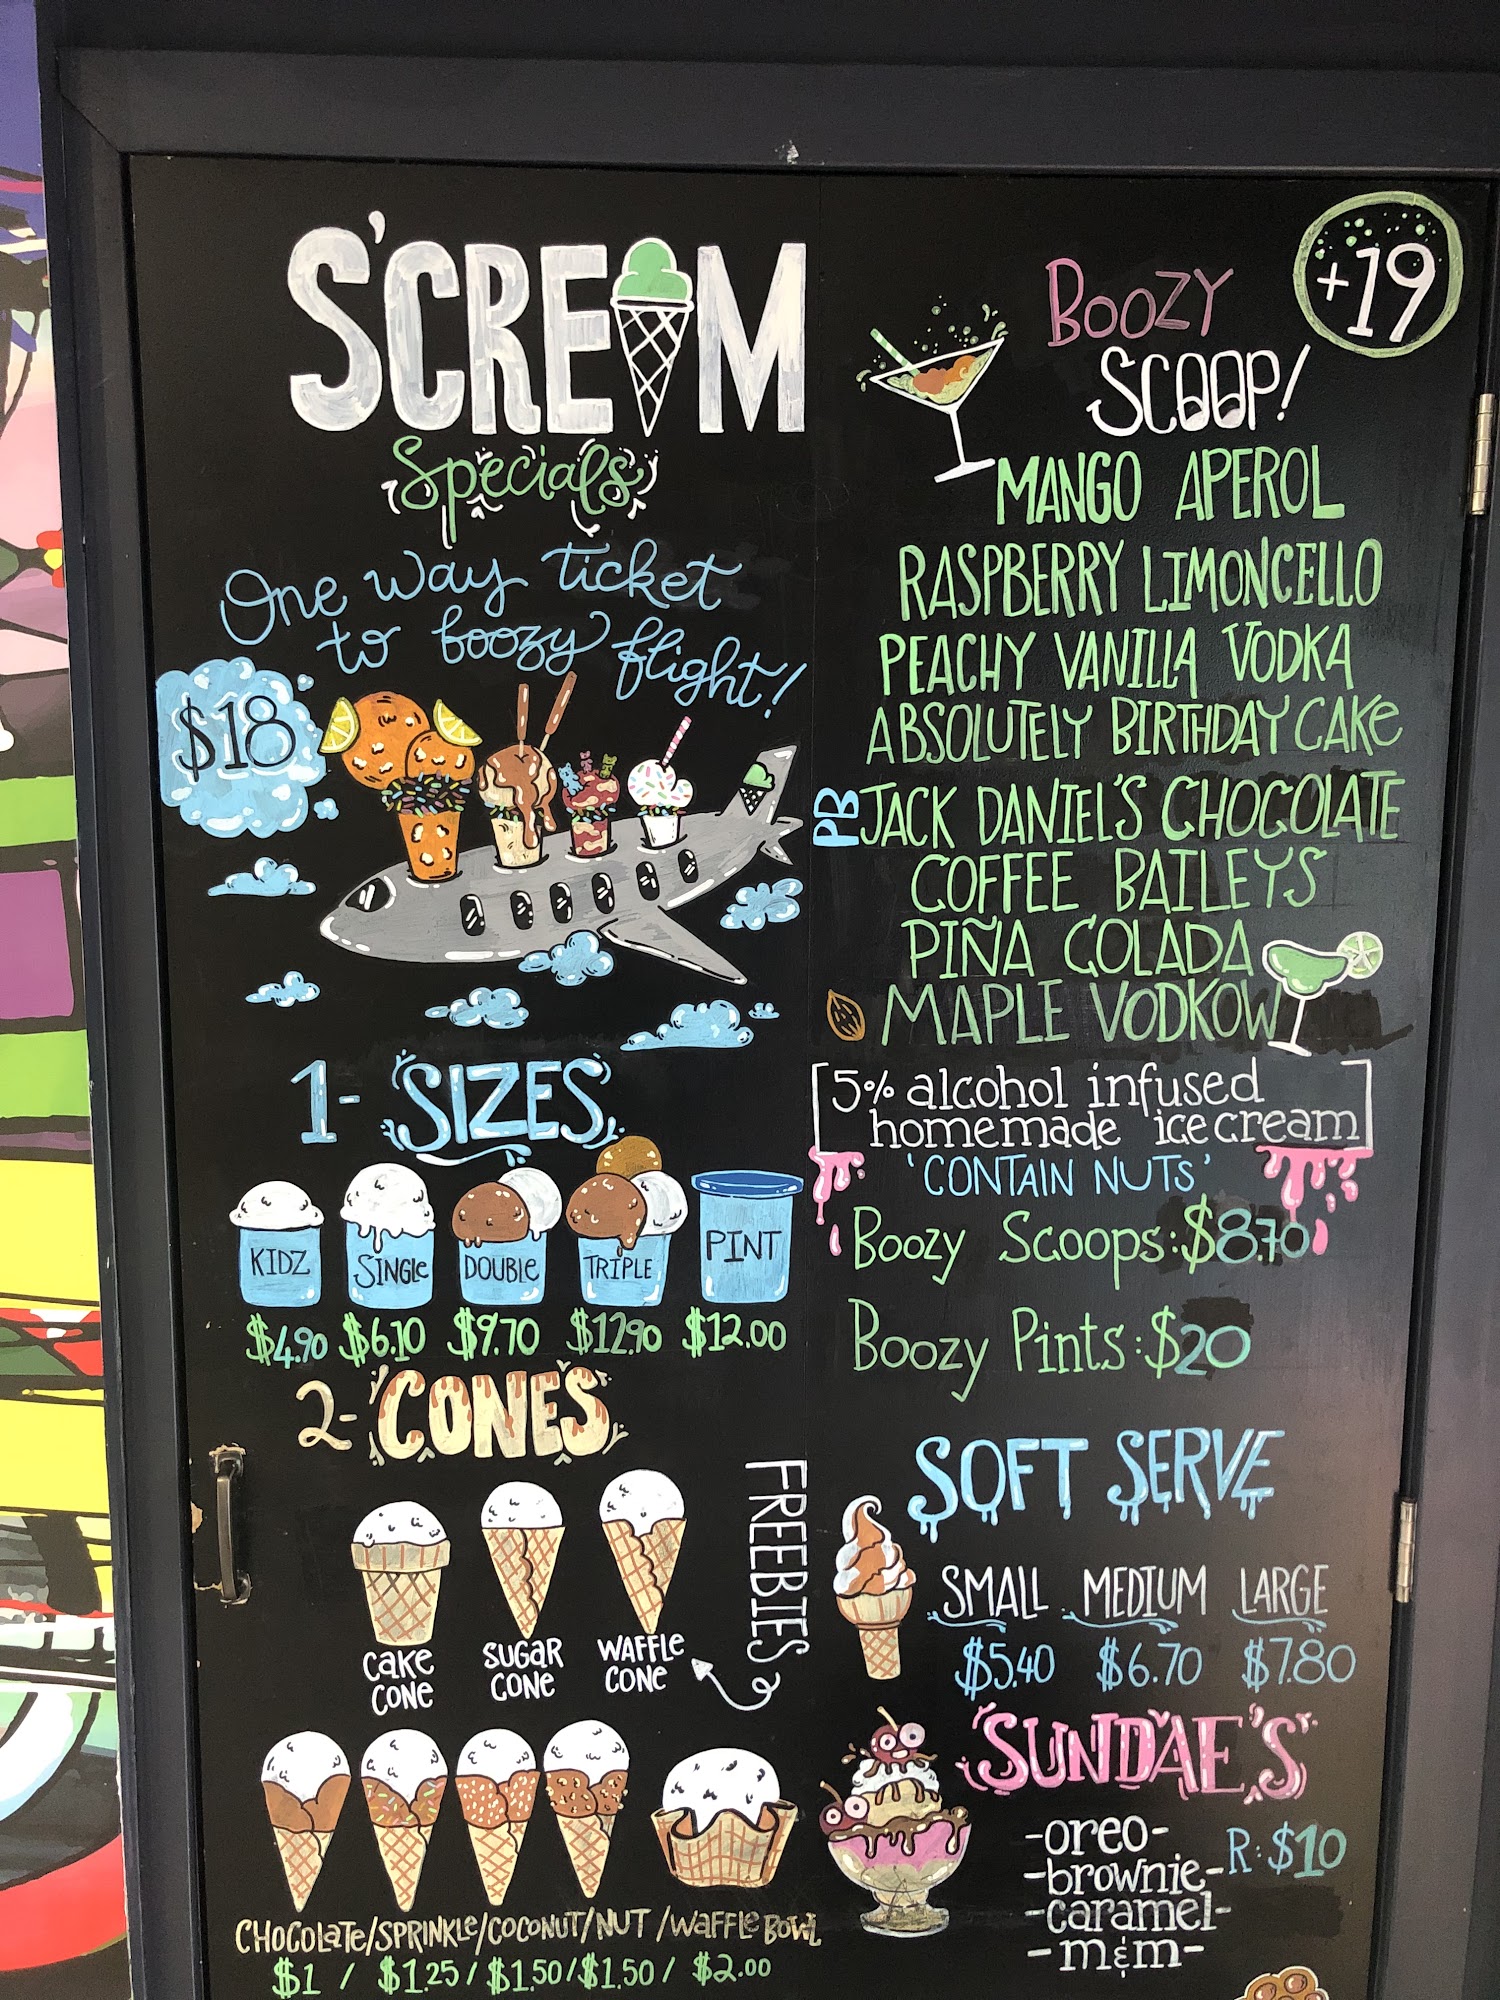 S'CREAM
Specials
One way ticket
to boozy flight!
$18
1- SIZES
KIDZ SINGLE DOUBLE TRIPLE PINT
$4.90 $6.10 $9.70 $12.90 $12.00
2- CONES
FREEBIES
CAKE CONE
SUGAR CONE
WAFFLE CONE
CHOCOLATE/SPRINKLE/COCONUT/NUT/WAFFLE BOWL
$1 / $1.25 / $1.50 / $1.50 / $2.00
+19
BOOZY
SCOOP!
MANGO APEROL
RASPBERRY LIMONCELLO
PEACHY VANILLA VODKA
ABSOLUTELY BIRTHDAY CAKE
PB JACK DANIEL'S CHOCOLATE
COFFEE BAILEYS
PIÑA COLADA
MAPLE VODKOW
[5% alcohol infused
homemade ice cream]
'CONTAIN NUTS'
BOOZY SCOOPS: $8.70
BOOZY PINTS: $20
SOFT SERVE
SMALL MEDIUM LARGE
$5.40 $6.70 $7.80
SUNDAE'S
-oreo-
-brownie- R: $10
-caramel-
-m&m-